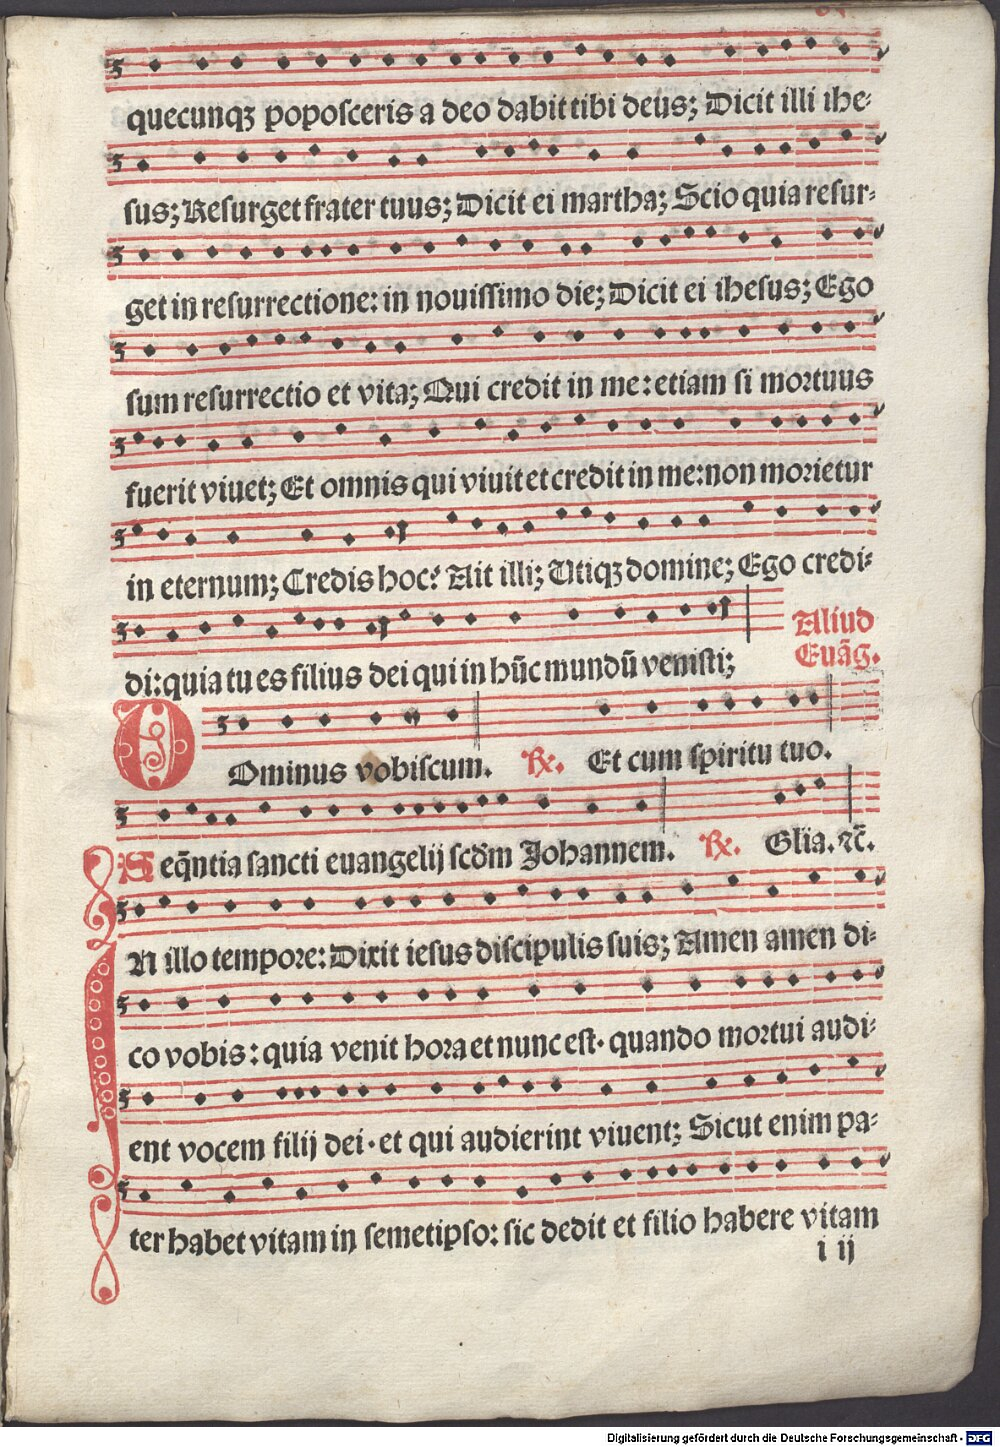 quecunqꝫ popoſceris a deo dabit tibi deus; Dicit illi ihe⸗
ſus; Reſurget frater tuus; Dicit ei martha; Scio quia reſur⸗
get in reſurrectione: in nouiſſimo die; Dicit ei iheſus; Ego
ſum reſurrectio et vita; Qui credit in me: etiam ſi moꝛtuus
fuerit viuet; Et omnis qui viuit et credit in me: non moꝛietur
in eternum; Credis hoc? Ait illi; Utiqꝫ domine; Ego credi⸗
di: quia tu es filius dei qui in hūc mundū veniſti;
Aliud
Euāg.
DOminus vobiſcum. ℟. Et cum ſpiritu tuo.
Seq̄ntia ſancti euangelij ſcd̄m Johannem. ℟. Glīa. ⁊c̄.
IN illo tempoꝛe: Dixit ieſus diſcipulis ſuis; Amen amen di⸗
co vobis: quia venit hoꝛa et nunc eſt· quando moꝛtui audi⸗
ent vocem filij dei· et qui audierint viuent; Sicut enim pa⸗
ter habet vitam in ſemetipſo: ſic dedit et filio habere vitam
i ij
Digitalisierung gefördert durch die Deutsche Forschungsgemeinschaft - DFG